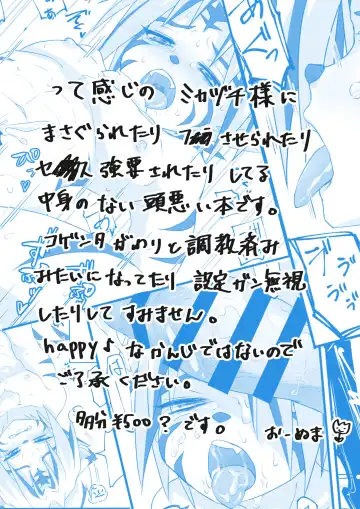 って感じの ミカヅチ様に
まさぐられたり させられたり
強要されたりしてる
中身のない頭悪い本です。
コゲンタがわりと調教済み
みたいになってたり 設定ガン無視
したりしてすみません。
happy♪なかんじではないので
ご了承ください。
多分¥500?です。
おーぬま